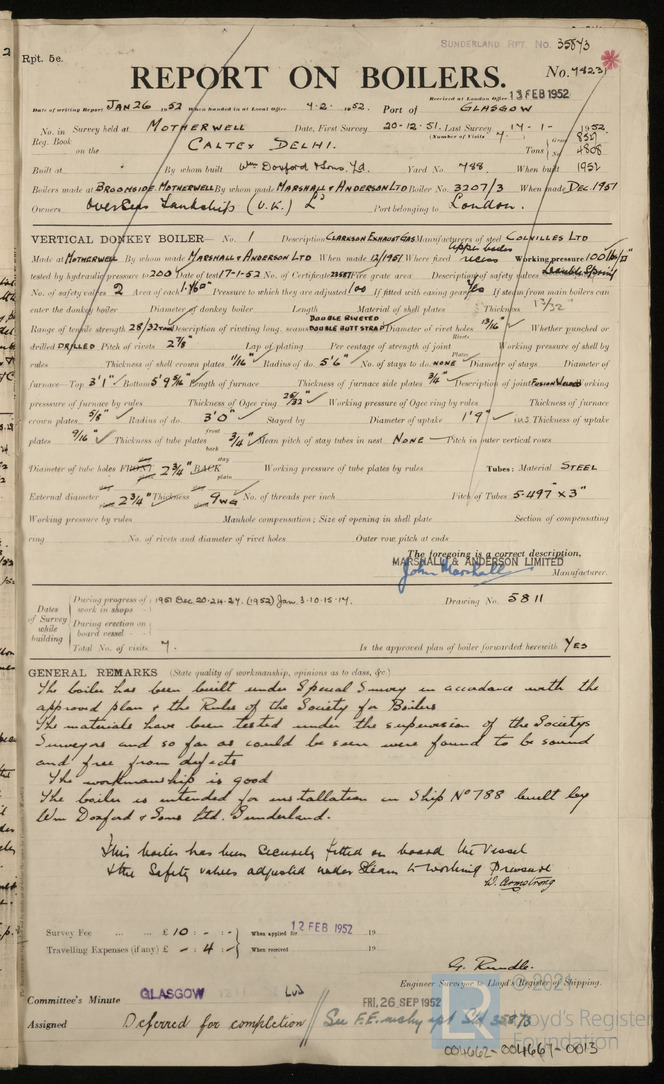 SUNDERLAND RPT. No. 35873
Rpt. 5e.
REPORT ON BOILERS.
No. 74231
Received at London Office 13 FEB 1952
Date of writing Report JAN 26 1952 When handed in at Local Office 4.2. 1952. Port of GLASGOW
No. in Reg. Book Survey held at MOTHERWELL Date, First Survey 20-12-51. Last Survey 17-1- 1952
(Number of Visits 7.)
on the CALTEX DELHI. Tons Gross Net 4808
Built at By whom built Wm. Doxford & Sons, Ld. Yard No. 788 When built 1952
Boilers made at BROOMSIDE MOTHERWELL By whom made MARSHALL & ANDERSON LTD Boiler No. 3207/3 When made DEC. 1951
Owners Overseas Tankship (U.K.) Ld Port belonging to London.
VERTICAL DONKEY BOILER— No. 1 Description CLARKSON EXHAUST GAS Manufacturers of steel COLVILLES LTD
Made at MOTHERWELL By whom made MARSHALL & ANDERSON LTD When made 12/1951 Where fixed Upper boiler recess Working pressure 100 lb/□"
tested by hydraulic pressure to 200 Date of test 17-1-52 No. of Certificate 23587 Fire grate area Description of safety valves Double Spring
No. of safety valves 2 Area of each Pressure to which they are adjusted 100 If fitted with easing gear Yes If steam from main boilers can
enter the donkey boiler Diameter of donkey boiler Length Material of shell plates Thickness 13/32"
Range of tensile strength 28/32 tons Description of riveting long. seams DOUBLE RIVETED DOUBLE BUTT STRAP Diameter of rivet holes 13/16" Whether punched or
drilled DRILLED Pitch of rivets 2 7/8" Lap of plating Per centage of strength of joint Rivets Plates Working pressure of shell by
rules Thickness of shell crown plates 11/16" Radius of do. 5'6" No. of stays to do. NONE Diameter of stays Diameter of
furnace—Top 3'1" Bottom 5'9 5/16" Length of furnace Thickness of furnace side plates 3/4" Description of joint FUSION WELDED Working
presssure of furnace by rules Thickness of Ogee ring 25/32" Working pressure of Ogee ring by rules Thickness of furnace
crown plates 5/8" Radius of do. 3'0" Stayed by Diameter of uptake 1'9" Thickness of uptake
plates 9/16" Thickness of tube plates front back 3/4" Mean pitch of stay tubes in nest NONE Pitch in outer vertical rows
Diameter of tube holes FRONT 2 3/4" BACK stay plain Working pressure of tube plates by rules Tubes: Material STEEL
External diameter 2 3/4" Thickness 9 WG No. of threads per inch Pitch of Tubes 5·497" x 3"
Working pressure by rules Manhole compensation; Size of opening in shell plate Section of compensating
ring No. of rivets and diameter of rivet holes Outer row pitch at ends
The foregoing is a correct description,
MARSHALL & ANDERSON LIMITED
John Marshall Manufacturer.
Dates of Survey while building
During progress of work in shops - 1951 Dec 20.24.27. (1952) Jan 3.10.15.17. Drawing No. 5811
During erection on board vessel -
Total No. of visits 7. Is the approved plan of boiler forwarded herewith YES
GENERAL REMARKS (State quality of workmanship, opinions as to class, &c.)
The boiler has been built under Special Survey in accordance with the
approved plan & the Rules of the Society for Boilers
The materials have been tested under the supervision of the Societys
Surveyors and so far as could be seen were found to be sound
and free from defects
The workmanship is good
The boiler is intended for installation in Ship No 788 built by
Wm Doxford & Sons Ltd. Sunderland.
This boiler has been securely fitted on board the Vessel
& the Safety valves adjusted under Steam to working Pressure
W. Armstrong
Survey Fee ... ... £ 10 : - : - When applied for 12 FEB 1952 19
Travelling Expenses (if any) £ - : 4 : - When received 19
G. Rundle.
Engineer Surveyor to Lloyd's Register of Shipping.
Committee's Minute GLASGOW
FRI. 26 SEP 1952
Assigned Deferred for completion // See F.E. mchy rpt Sld 35873
© 2021
Lloyd's Register
Foundation
004662-004667-0013